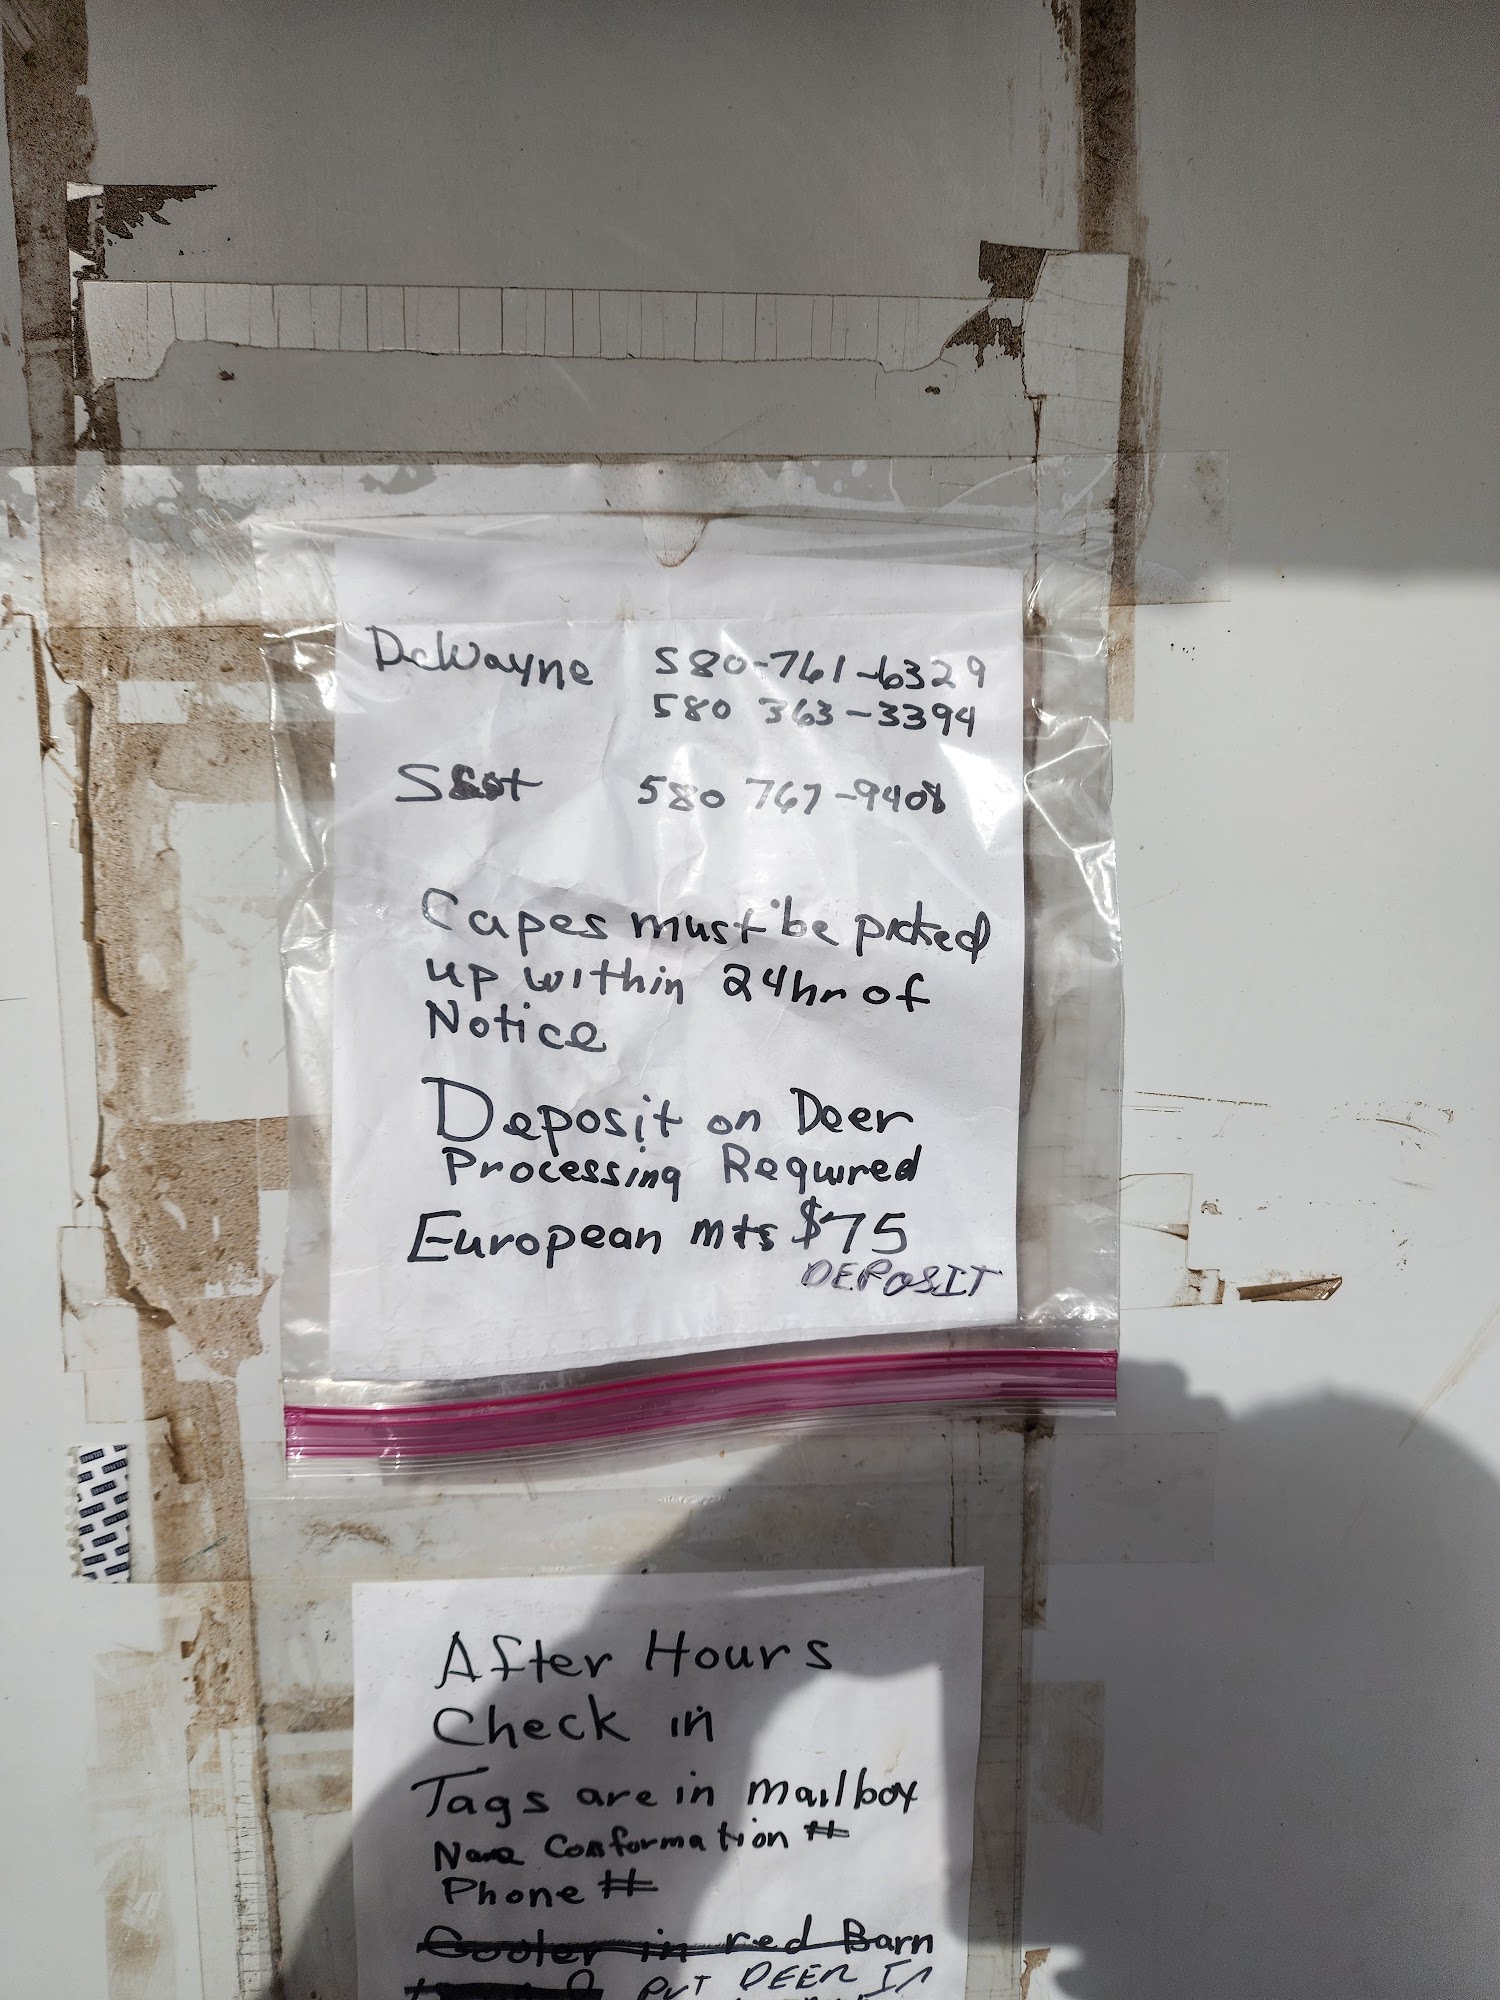 DeWayne 580-761-6329
580 363-3394
580 767-9408
Capes must be picked
up within 24hr of
Notice
Deposit on Deer
Processing Required
European mts $75
DEPOSIT
After Hours
Check in
Tags are in mailbox
Name Conformation #
Phone #
Cooler in red Barn
PUT DEER IN